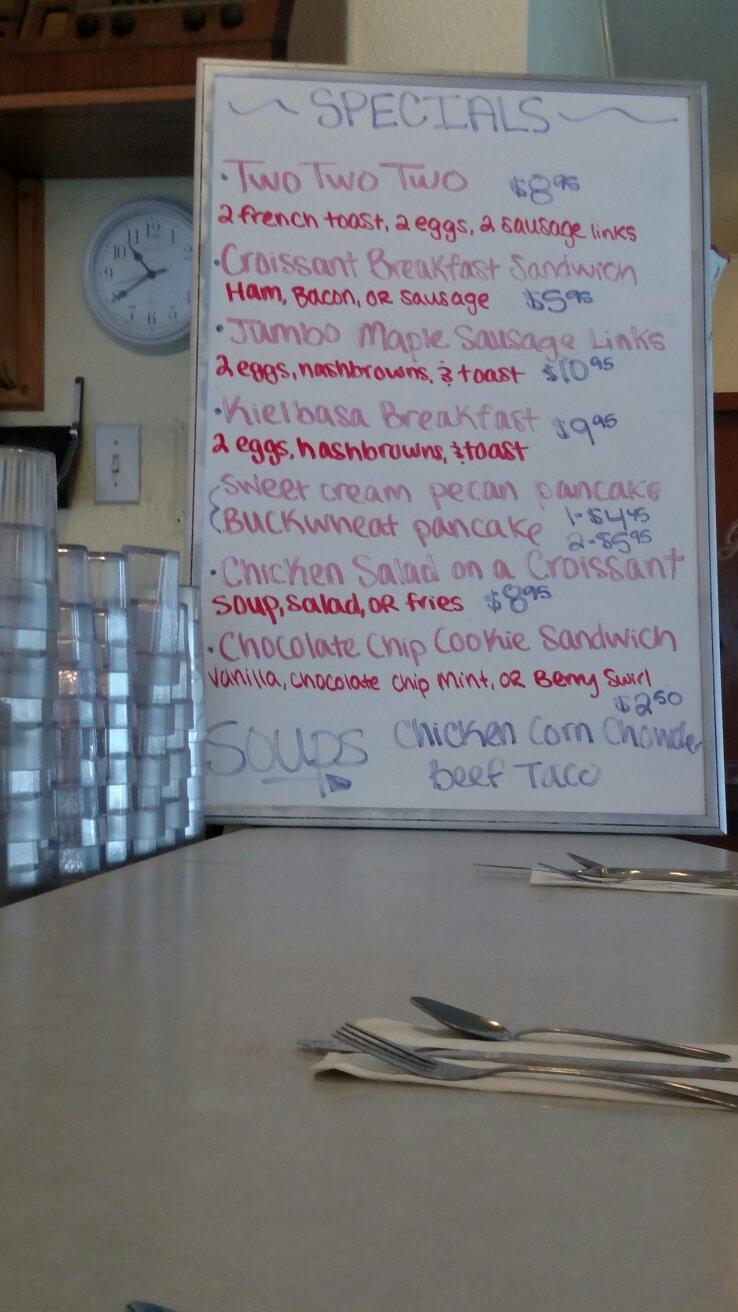 SPECIALS
• Two Two Two $8.95
2 french toast, 2 eggs, 2 sausage links
• Croissant Breakfast Sandwich
Ham, Bacon, or sausage $5.95
• Jumbo Maple Sausage Links
2 eggs, hashbrowns, & toast $10.95
• Kielbasa Breakfast $9.95
2 eggs, hashbrowns, & toast
Sweet cream pecan pancake
Buckwheat pancake 1-$4.45
2-$5.95
• Chicken Salad on a Croissant
soup, salad, or fries $8.95
• Chocolate Chip Cookie Sandwich
Vanilla, chocolate chip mint, or Berry Swirl
$2.50
Soups Chicken Corn Chowder
Beef Taco
11
12
1
10
2
9
8
7
6
5